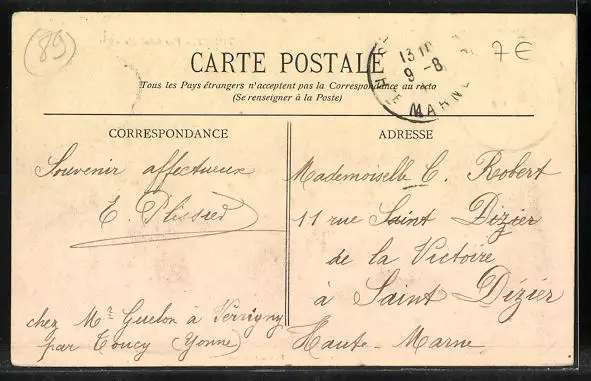 (89)
7€
CARTE POSTALE
Tous les Pays étrangers n'acceptent pas la Correspondance au recto
(Se renseigner à la Poste)
13
9 -8
HTE MARNE
CORRESPONDANCE
Souvenir affectueux
E. Plissier
chez Mr Guelon à Perrigny
par Toucy (Yonne)
ADRESSE
Mademoiselle C. Robert
11 rue Saint Dizier
de la Victoire
à Saint Dizier
Haute-Marne